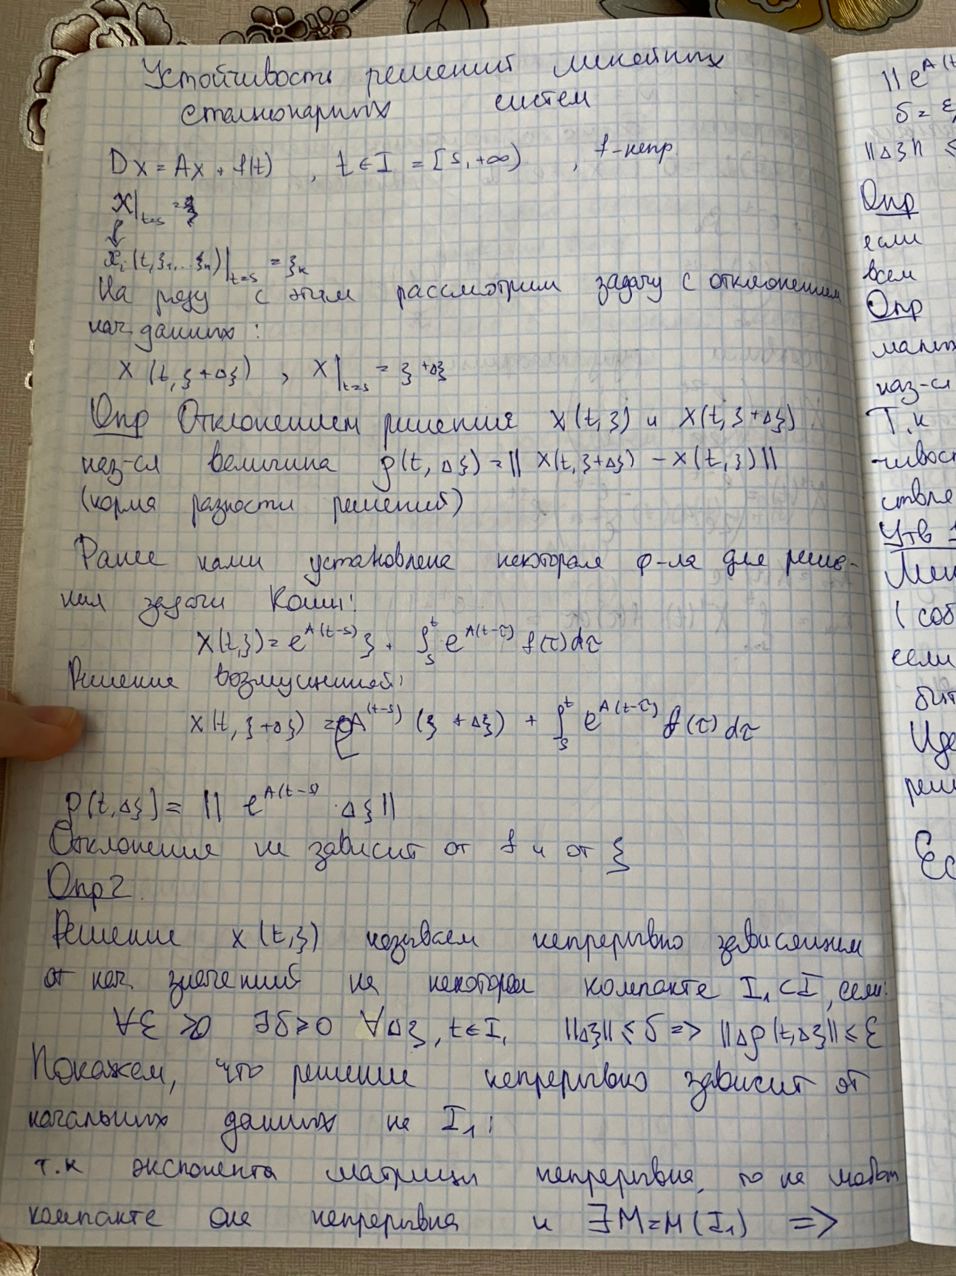 Устойчивость решений линейных
стационарных систем
Dx = Ax + f(t) , t ∈ I = [s, +∞) , f-непр.
x|t=s = ξ
↓
xi(t, ξ1, ... ξn)|t=s = ξk
На ряду с этим рассмотрим задачу с отклонением
нач. данных:
x(t, ξ+Δξ) , x|t=s = ξ+Δξ
Опр Отклонением решения x(t,ξ) и x(t,ξ+Δξ)
наз-ся величина ρ(t, Δξ) = || x(t,ξ+Δξ) - x(t,ξ) ||
(норма разности решений)
Ранее нами установлена некоторая ф-ла для реше-
ния задачи Коши:
x(t,ξ) = e^A(t-s) ξ + ∫s^t e^A(t-τ) f(τ)dτ
Решение возмущенной:
x(t, ξ+Δξ) = e^A(t-s) (ξ + Δξ) + ∫s^t e^A(t-τ) f(τ)dτ
ρ(t,Δξ) = || e^A(t-s) · Δξ ||
Отклонение не зависит от f и от ξ
Опр2.
Решение x(t,ξ) называем непрерывно зависящим
от нач. значений на некотором компакте I1 ⊂ I, если:
∀ε > 0 ∃δ>0 ∀Δξ, t∈I1 ||Δξ|| ≤ δ => ||Δρ(t,Δξ)|| ≤ ε
Покажем, что решение непрерывно зависит от
начальных данных на I1:
т.к экспонента матрицы непрерывна, то на любом
компакте она непрерывна и ∃M=M(I1) =>
|| e^A(t
δ = ε
||Δξ|| ≤
Опр
если
всем
Опр
наз-ся
Т.к
Утв 1
если
Ес